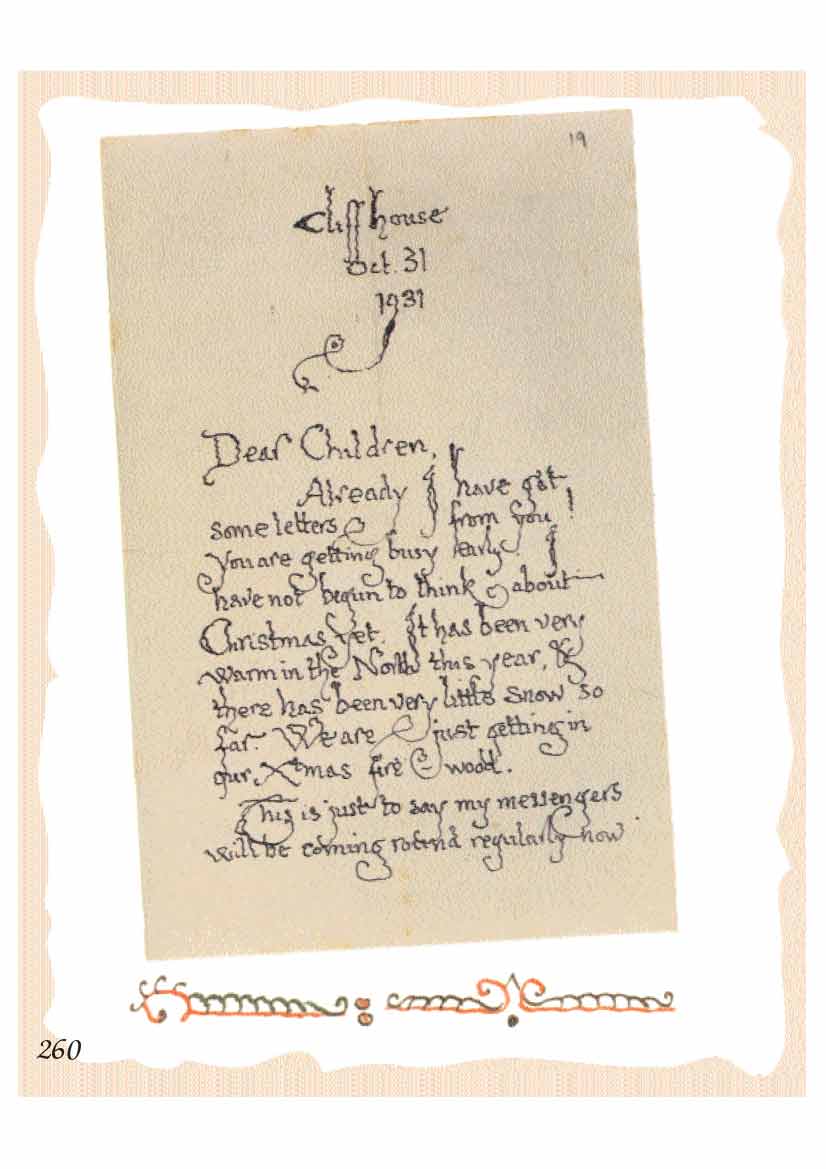 19
Cliff house
Oct. 31
1931
Dear Children,
Already I have got
some letters from you!
You are getting busy early. I
have not begun to think about
Christmas yet. It has been very
warm in the North this year, &
there has been very little snow so
far. We are just getting in
our Xtmas fire wood.
This is just to say my messengers
will be coming round regularly now
260